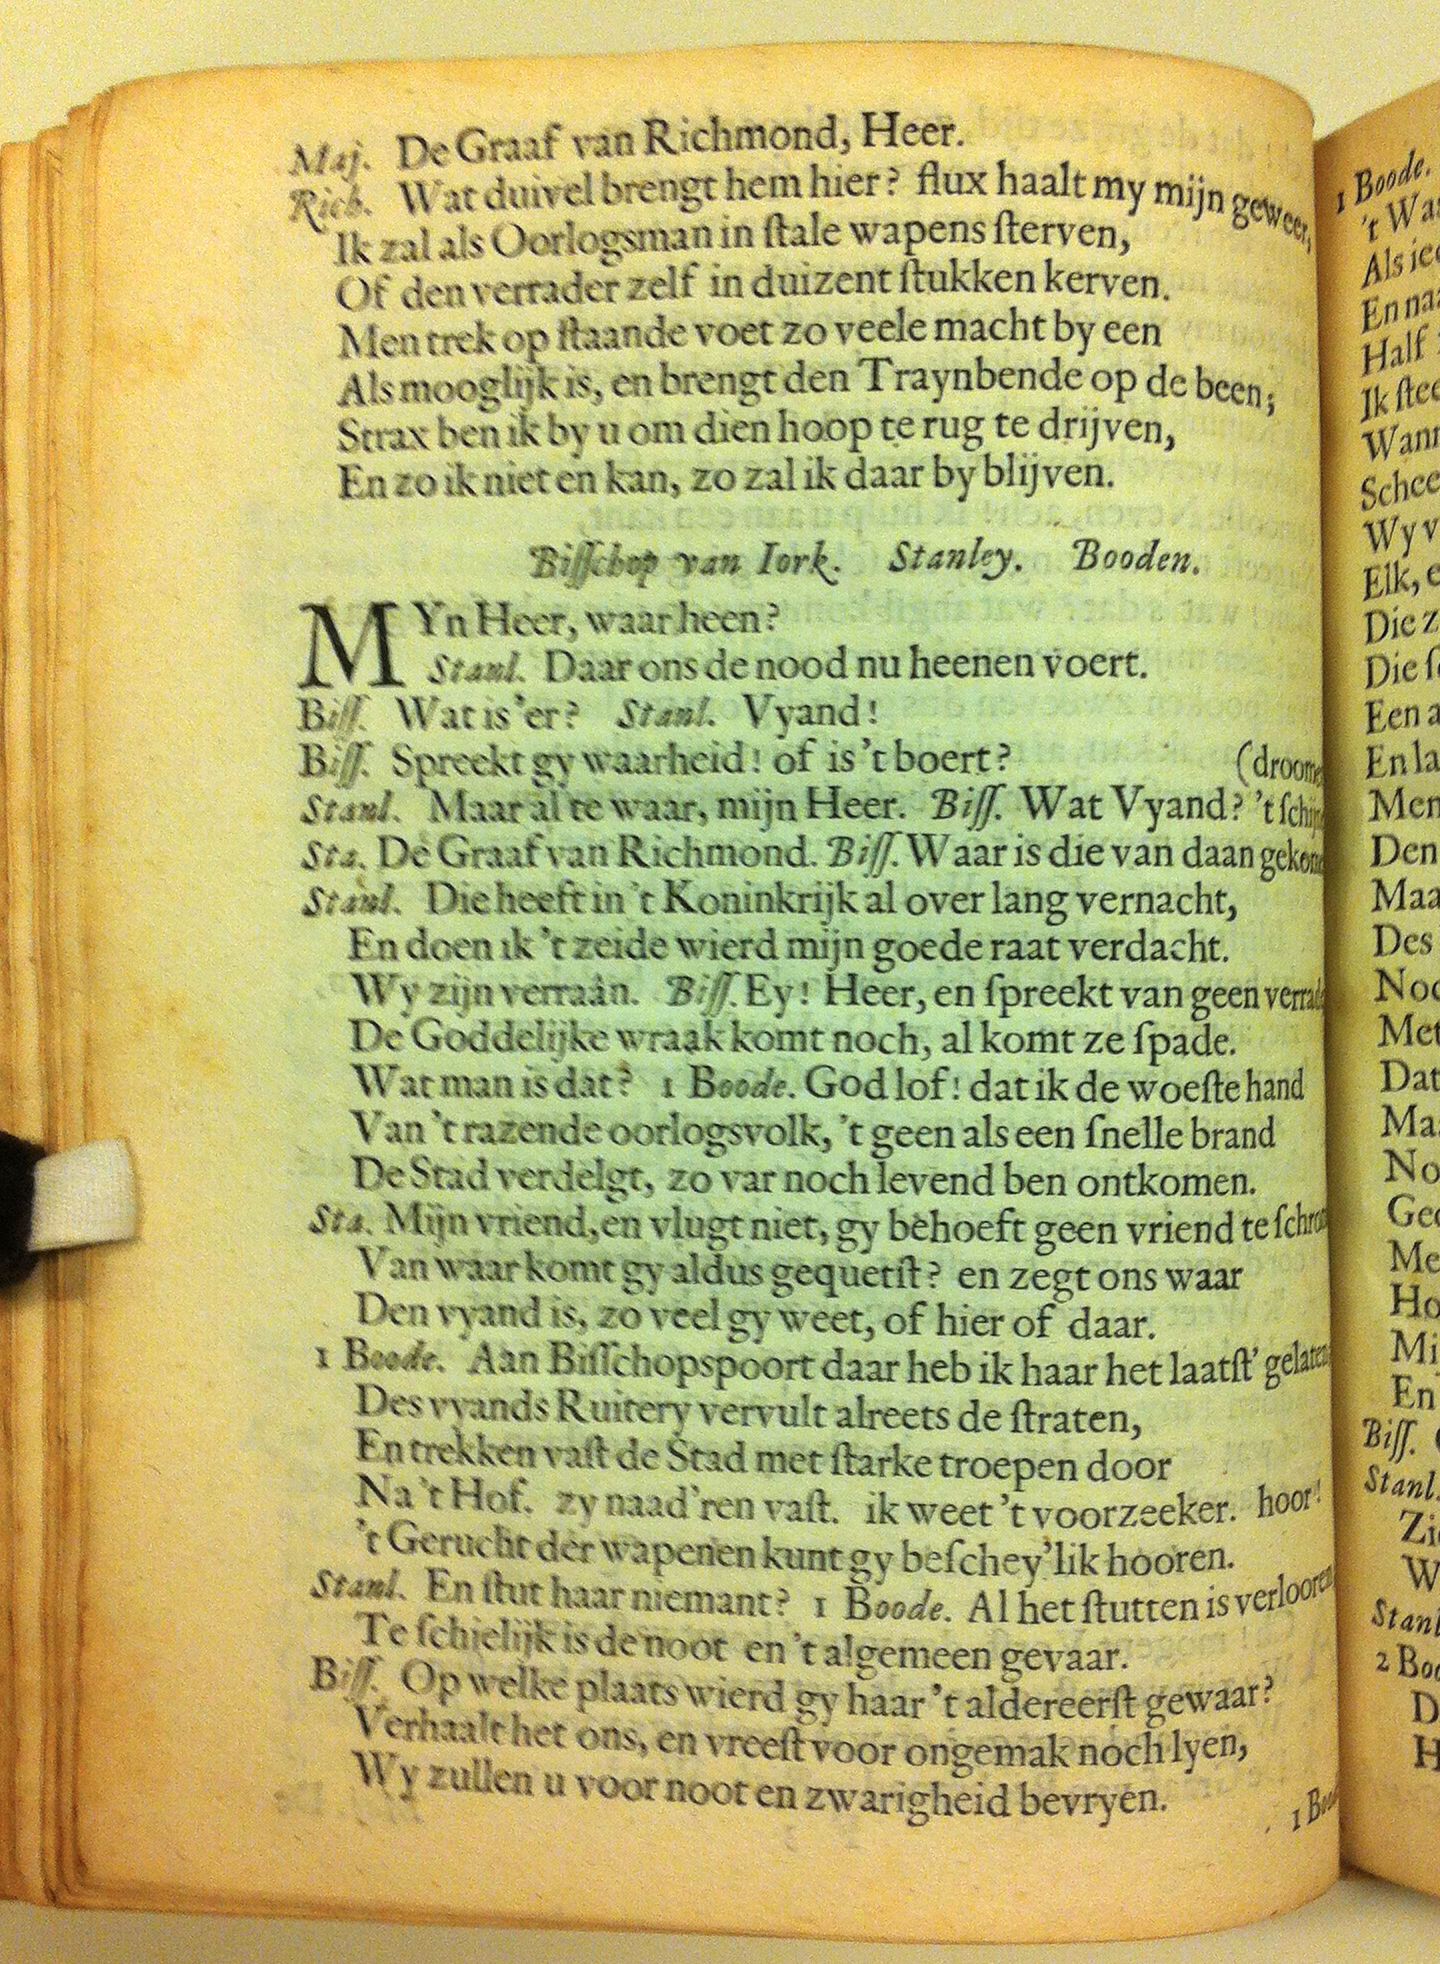 Maj. De Graaf van Richmond, Heer.
Rich. Wat duivel brengt hem hier? flux haalt my mijn geweer,
Ik zal als Oorlogsman in ſtale wapens ſterven,
Of den verrader zelf in duizent ſtukken kerven.
Men trek op ſtaande voet zo veele macht by een
Als mooglijk is, en brengt den Traynbende op de been;
Strax ben ik by u om dien hoop te rug te drijven,
En zo ik niet en kan, zo zal ik daar by blijven.
Biſſchop van Iork. Stanley. Booden.
MYn Heer, waar heen?
Stanl. Daar ons de nood nu heenen voert.
Biſſ. Wat is 'er? Stanl. Vyand!
Biſſ. Spreekt gy waarheid! of is 't boert?
Stanl. Maar al te waar, mijn Heer. Biſſ. Wat Vyand? 't (droome
Sta. De Graaf van Richmond. Biſſ. Waar is die van daan
Stanl. Die heeft in 't Koninkrijk al over lang vernacht,
En doen ik 't zeide wierd mijn goede raat verdacht.
Wy zijn verraân. Biſſ. Ey! Heer, en ſpreekt van geen
De Goddelijke wraak komt noch, al komt ze ſpade.
Wat man is dat? 1 Boode. God lof! dat ik de woeſte hand
Van 't razende oorlogsvolk, 't geen als een ſnelle brand
De Stad verdelgt, zo var noch levend ben ontkomen.
Sta. Mijn vriend, en vlugt niet, gy behoeft geen vriend te
Van waar komt gy aldus gequetſt? en zegt ons waar
Den vyand is, zo veel gy weet, of hier of daar.
1 Boode. Aan Biſſchopspoort daar heb ik haar het laatſt' gelaten
Des vyands Ruitery vervult alreets de ſtraten,
En trekken vaſt de Stad met ſtarke troepen door
Na 't Hof. zy naad'ren vaſt. ik weet 't voorzeeker. hoor!
't Gerucht der wapenen kunt gy beſchey'lik hooren.
Stanl. En ſtut haar niemant? 1 Boode. Al het ſtutten is verlooren
Te ſchielijk is de noot en 't algemeen gevaar.
Biſſ. Op welke plaats wierd gy haar 't aldereerſt gewaar?
Verhaalt het ons, en vreeſt voor ongemak noch lyen,
Wy zullen u voor noot en zwarigheid bevryen.
1 Boo
1 Boode.
't Wa
Als ie
En na
Half
Ik ſtee
Wann
Schee
Wy v
Elk, e
Die z
Die ſ
Een a
En la
Men
Den
Maa
Des
Noc
Met
Dat
Ma
No
Ged
Me
Ho
Mi
En
Biſſ.
Stanl.
Zi
W
Stanl
2 Boo
D
H